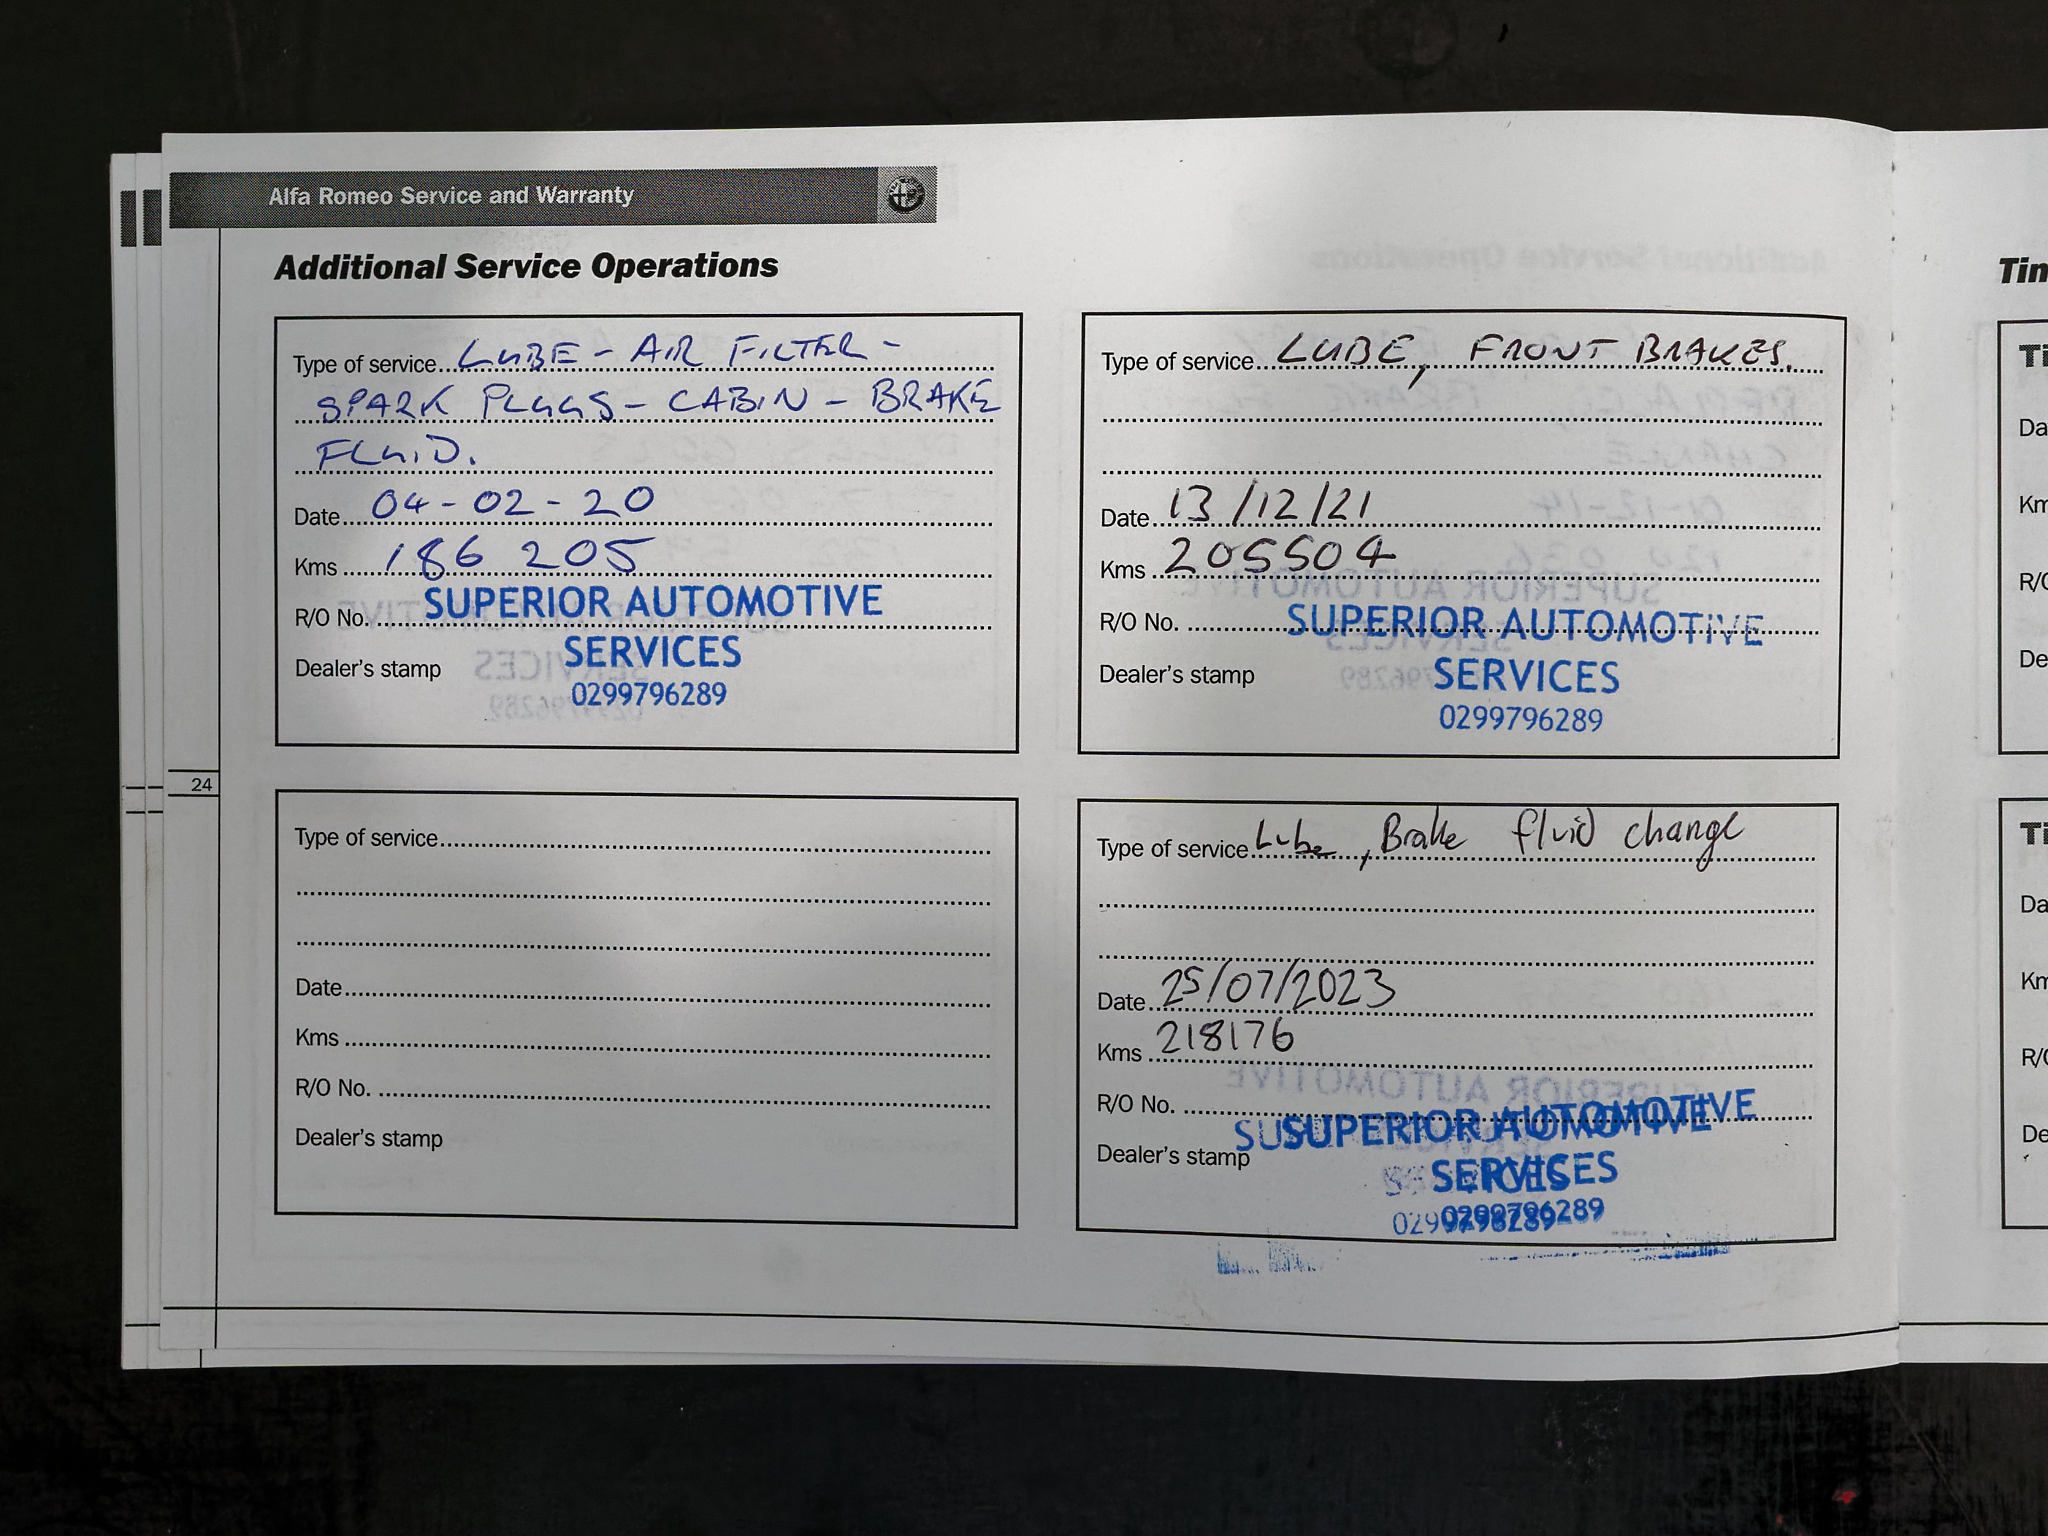 Alfa Romeo Service and Warranty
Additional Service Operations
Type of service LUBE - AIR FILTER -
SPARK PLUGS - CABIN - BRAKE
FLUID.
Date 04-02-20
Kms 186 205
R/O No.
Dealer's stamp
SUPERIOR AUTOMOTIVE
SERVICES
0299796289
Type of service LUBE, FRONT BRAKES.
Date 13/12/21
Kms 205504
R/O No.
Dealer's stamp
SUPERIOR AUTOMOTIVE
SERVICES
0299796289
24
Type of service
Date
Kms
R/O No.
Dealer's stamp
Type of service Lube, Brake fluid change
Date 25/07/2023
Kms 218176
R/O No.
Dealer's stamp
SUPERIOR AUTOMOTIVE
SERVICES
0299796289
Tin
Ti
Da
Km
R/O
De
Ti
Da
Km
R/O
De